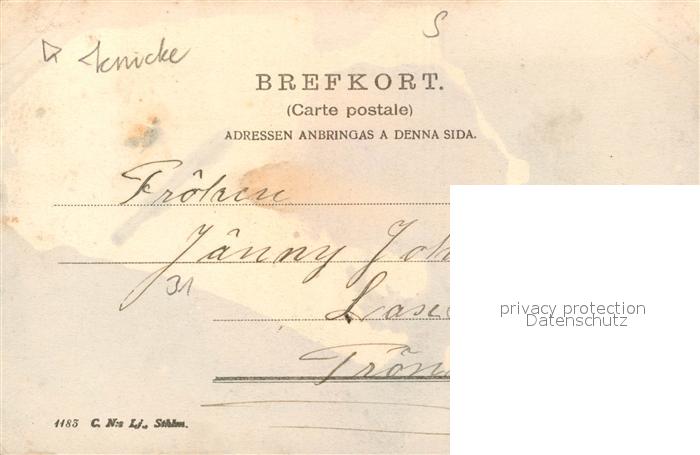 S
Knicke
BREFKORT.
(Carte postale)
ADRESSEN ANBRINGAS A DENNA SIDA.
Fröken
Jänny Joh
31
privacy protection
Datenschutz
Trön
1183 C. N:s Lj., Sthlm.